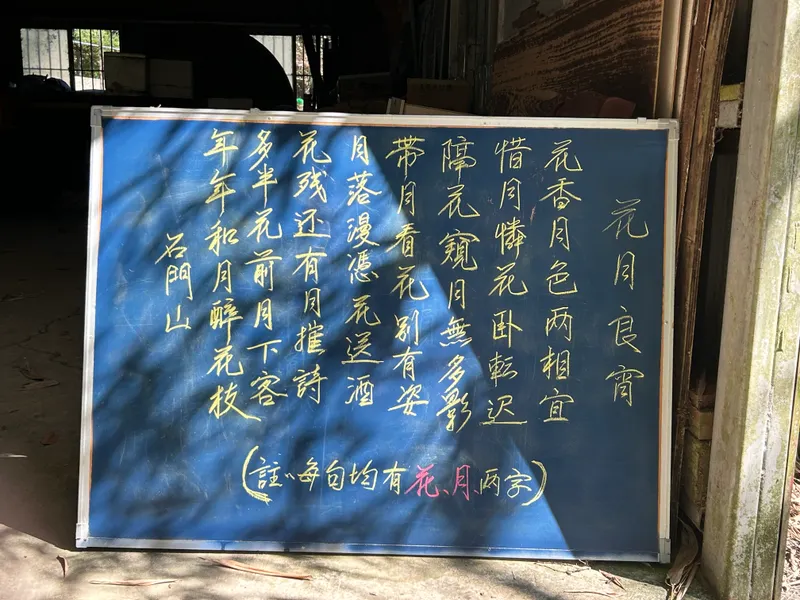 花月良宵
花香月色两相宜
惜月憐花卧転迟
隔花窺月無多影
带月看花别有姿
月落漫憑花送酒
花残还有月摧詩
多半花前月下客
年年和月醉花枝
石門山
(註:每句均有花、月、两字)